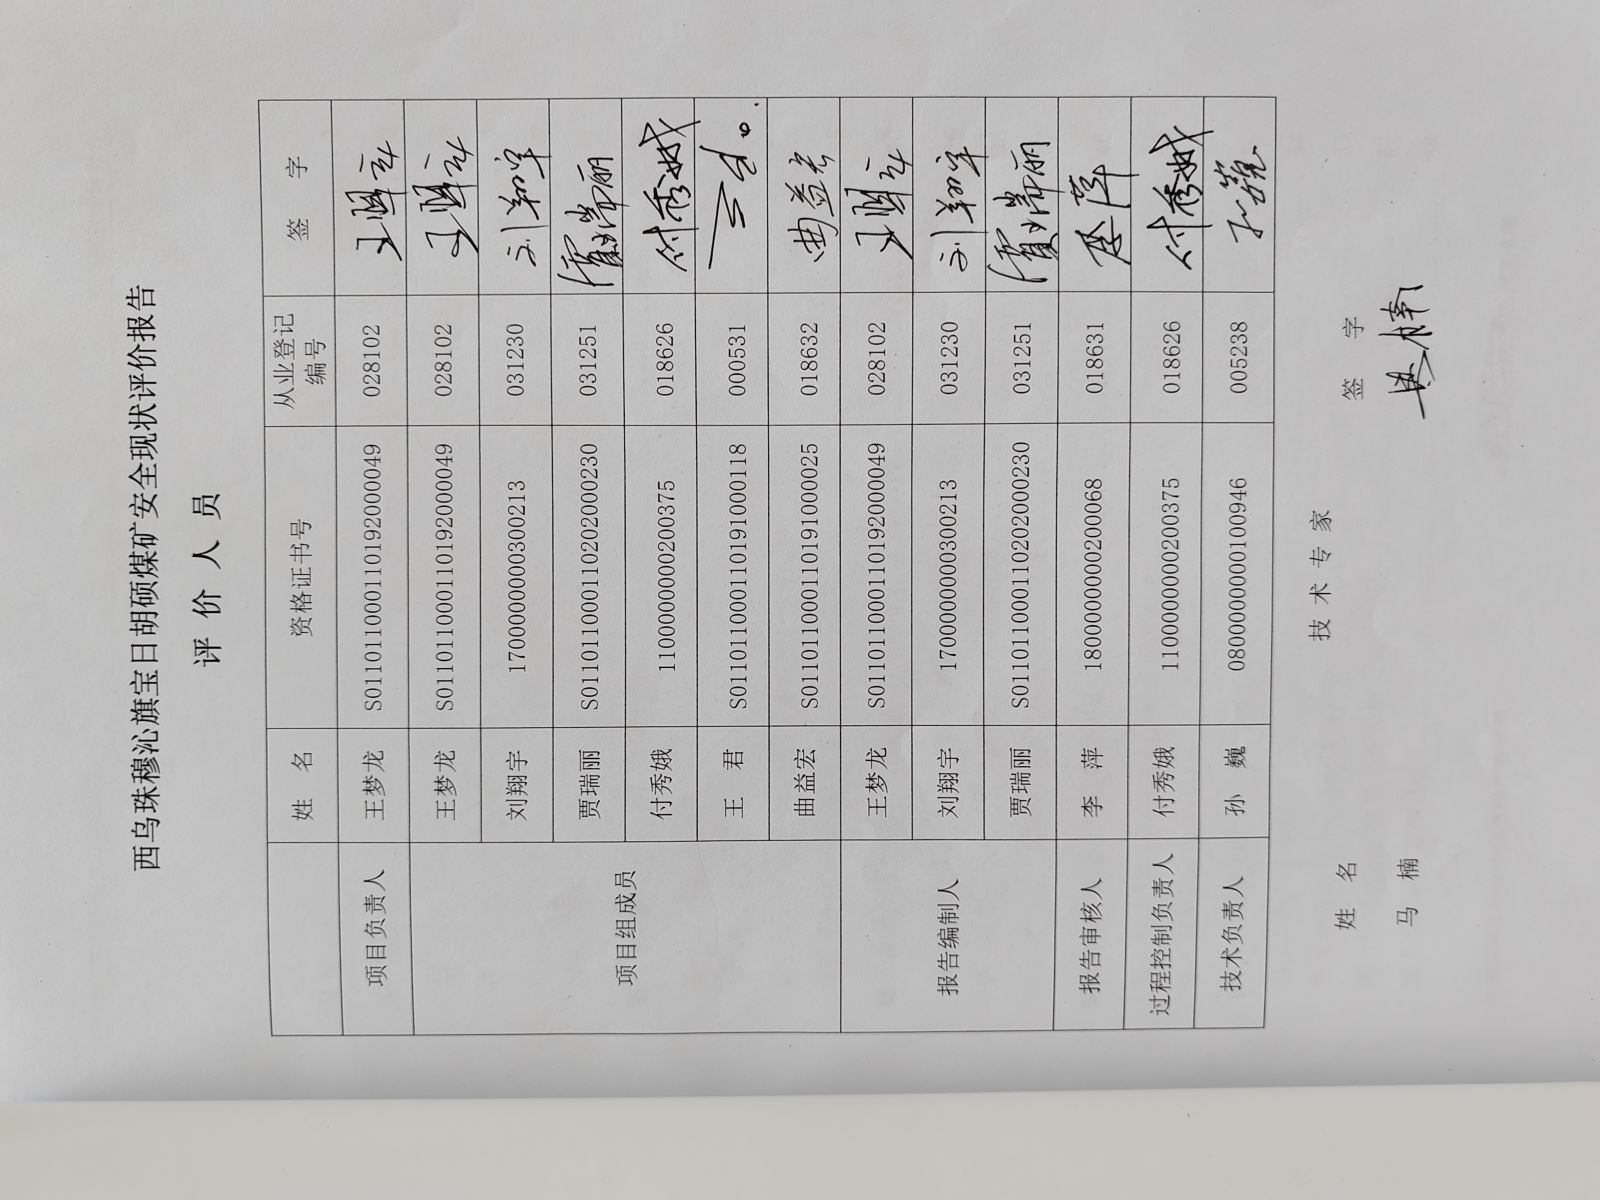 西乌珠穆沁旗宝日胡硕煤矿安全现状评价报告
评价人员
姓 名 资格证书号 从业登记编号 签 字
项目负责人 王梦龙 S011011000110192000049 028102
项目组成员 王梦龙 S011011000110192000049 028102
刘翔宇 1700000000300213 031230 刘翔宇
贾瑞丽 S011011000110202000230 031251 贾瑞丽
付秀娥 1100000000200375 018626 付秀娥
王 君 S011011000110191000118 000531
曲益宏 S011011000110191000025 018632 曲益宏
报告编制人 王梦龙 S011011000110192000049 028102
刘翔宇 1700000000300213 031230 刘翔宇
贾瑞丽 S011011000110202000230 031251 贾瑞丽
报告审核人 李 萍 1800000000200068 018631 李萍
过程控制负责人 付秀娥 1100000000200375 018626 付秀娥
技术负责人 孙 巍 0800000000100946 005238 孙巍
技术专家
姓 名 签 字
马 楠 马楠